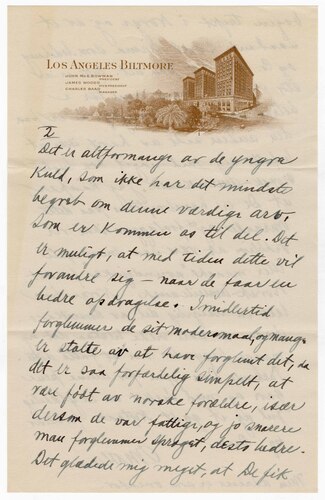 LOS ANGELES BILTMORE
JOHN McE. BOWMAN
PRESIDENT
JAMES WOODS
VICE PRESIDENT
CHARLES BAAD
MANAGER
2
Det er altformange av de yngra
Kuld, som ikke har det mindste
begreb om denne værdige arv,
som er kommen os til del. Det
er muligt, at med tiden dette vil
forandre sig – naar de faar en
bedre opdragelse. Imidlertid
forglemmer de sit modersmaal, og mange
er stolte av at have forglemt det, da
det er saa forfærdelig simpelt, at
være född av norske forældre, især
dersom de var fattige, og jo snarere
man forglemmer sproget, desto bedre.
Det glædede mig meget, at De fik